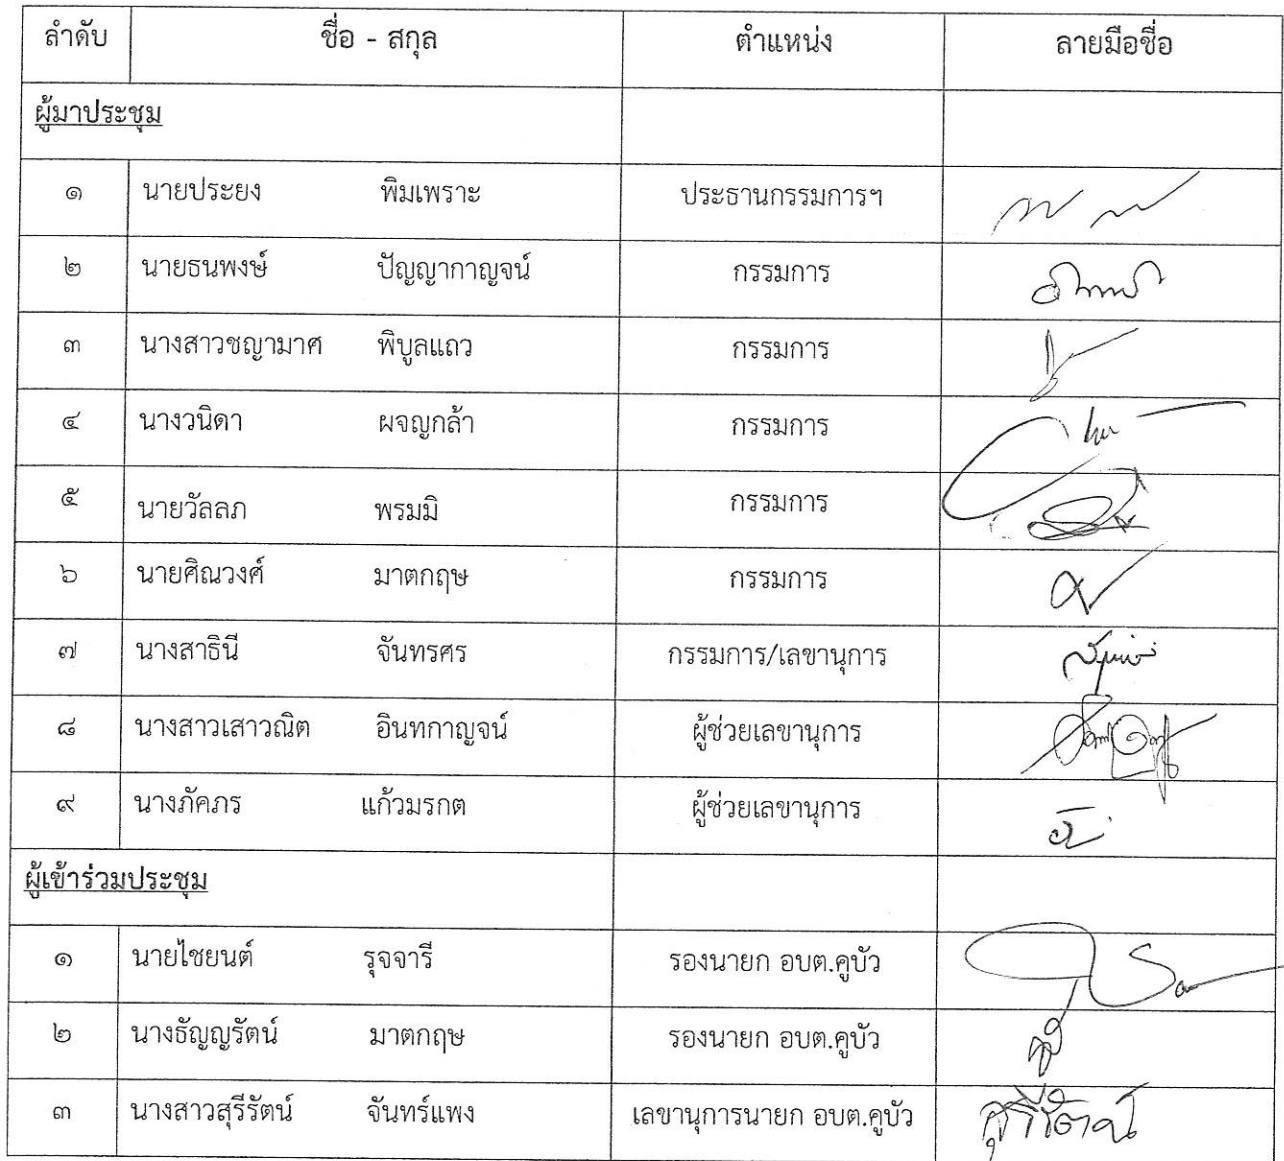 ลำดับ ชื่อ - สกุล ตำแหน่ง ลายมือชื่อ
ผู้มาประชุม
๑ นายประยง พิมเพราะ ประธานกรรมการฯ
๒ นายธนพงษ์ ปัญญากาญจน์ กรรมการ
๓ นางสาวชญามาศ พิบูลแถว กรรมการ
๔ นางวนิดา ผจญกล้า กรรมการ
๕ นายวัลลภ พรมมิ กรรมการ
๖ นายศิณวงศ์ มาตกฤษ กรรมการ
๗ นางสาธินี จันทรศร กรรมการ/เลขานุการ
๘ นางสาวเสาวณิต อินทกาญจน์ ผู้ช่วยเลขานุการ
๙ นางภัคภร แก้วมรกต ผู้ช่วยเลขานุการ
ผู้เข้าร่วมประชุม
๑ นายไชยนต์ รุจจารี รองนายก อบต.คูบัว
๒ นางธัญญรัตน์ มาตกฤษ รองนายก อบต.คูบัว
๓ นางสาวสุรีรัตน์ จันทร์แพง เลขานุการนายก อบต.คูบัว สุรีรัตน์